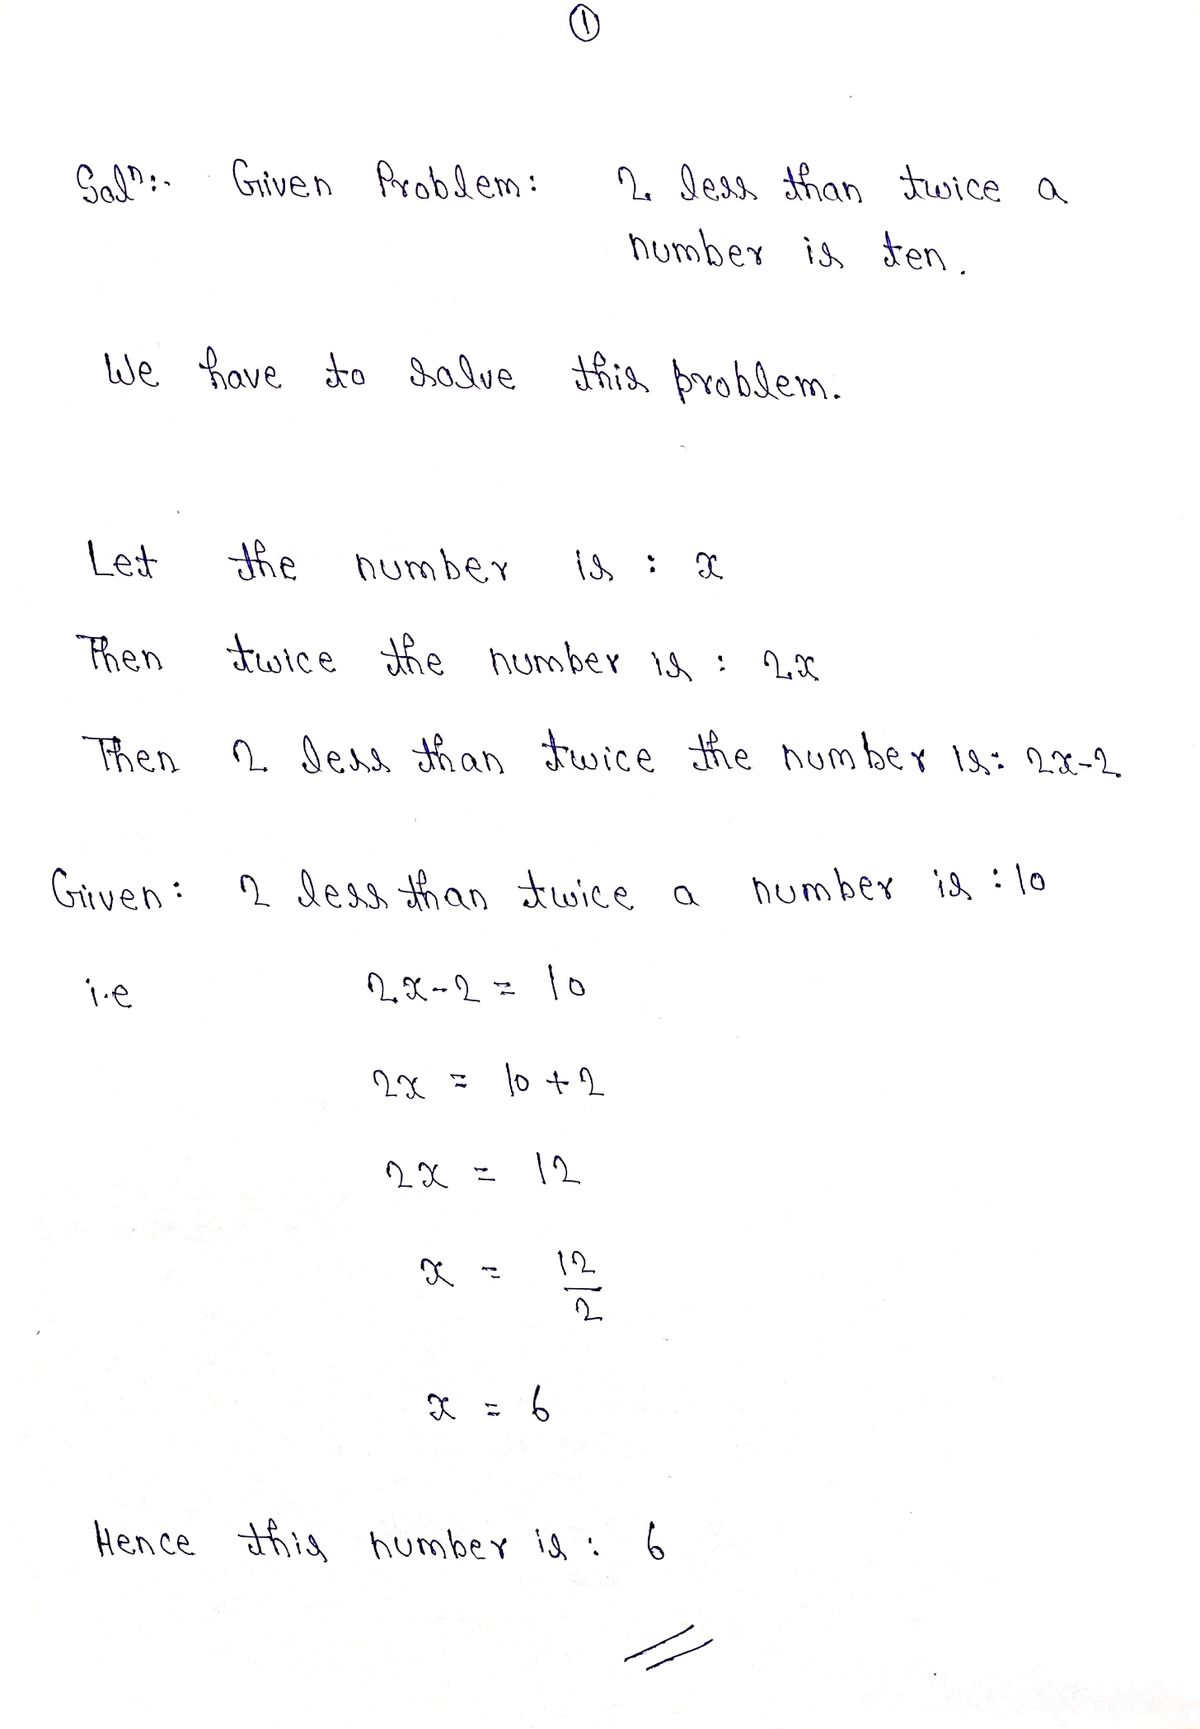 ①
Solⁿ:- Given Problem: 2 less than twice a
number is ten.
We have to solve this problem.
Let the number is : x
Then twice the number is : 2x
Then 2 less than twice the number is: 2x-2
Given: 2 less than twice a number is : 10
i.e 2x-2 = 10
2x = 10 + 2
2x = 12
x = 12/2
x = 6
Hence this number is : 6